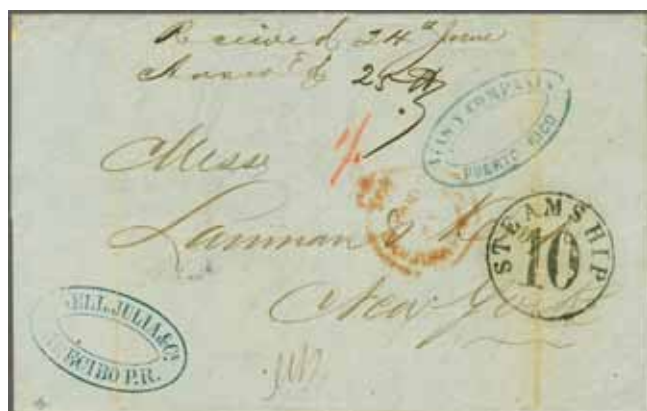 Received 24th June
Answd 25 d
Y COMPAÑIA
PUERTO RICO
1/
Mess
Lanman & K
STEAMSHIP
10
New York
ELL, JULIA & Co
ECIBO P.R.